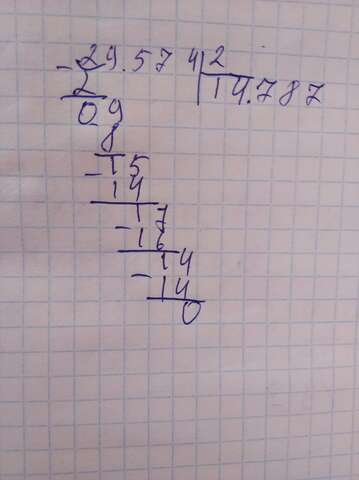 - 29.574 2
2 14.787
09
8
- 15
14
17
- 16
14
- 14
0